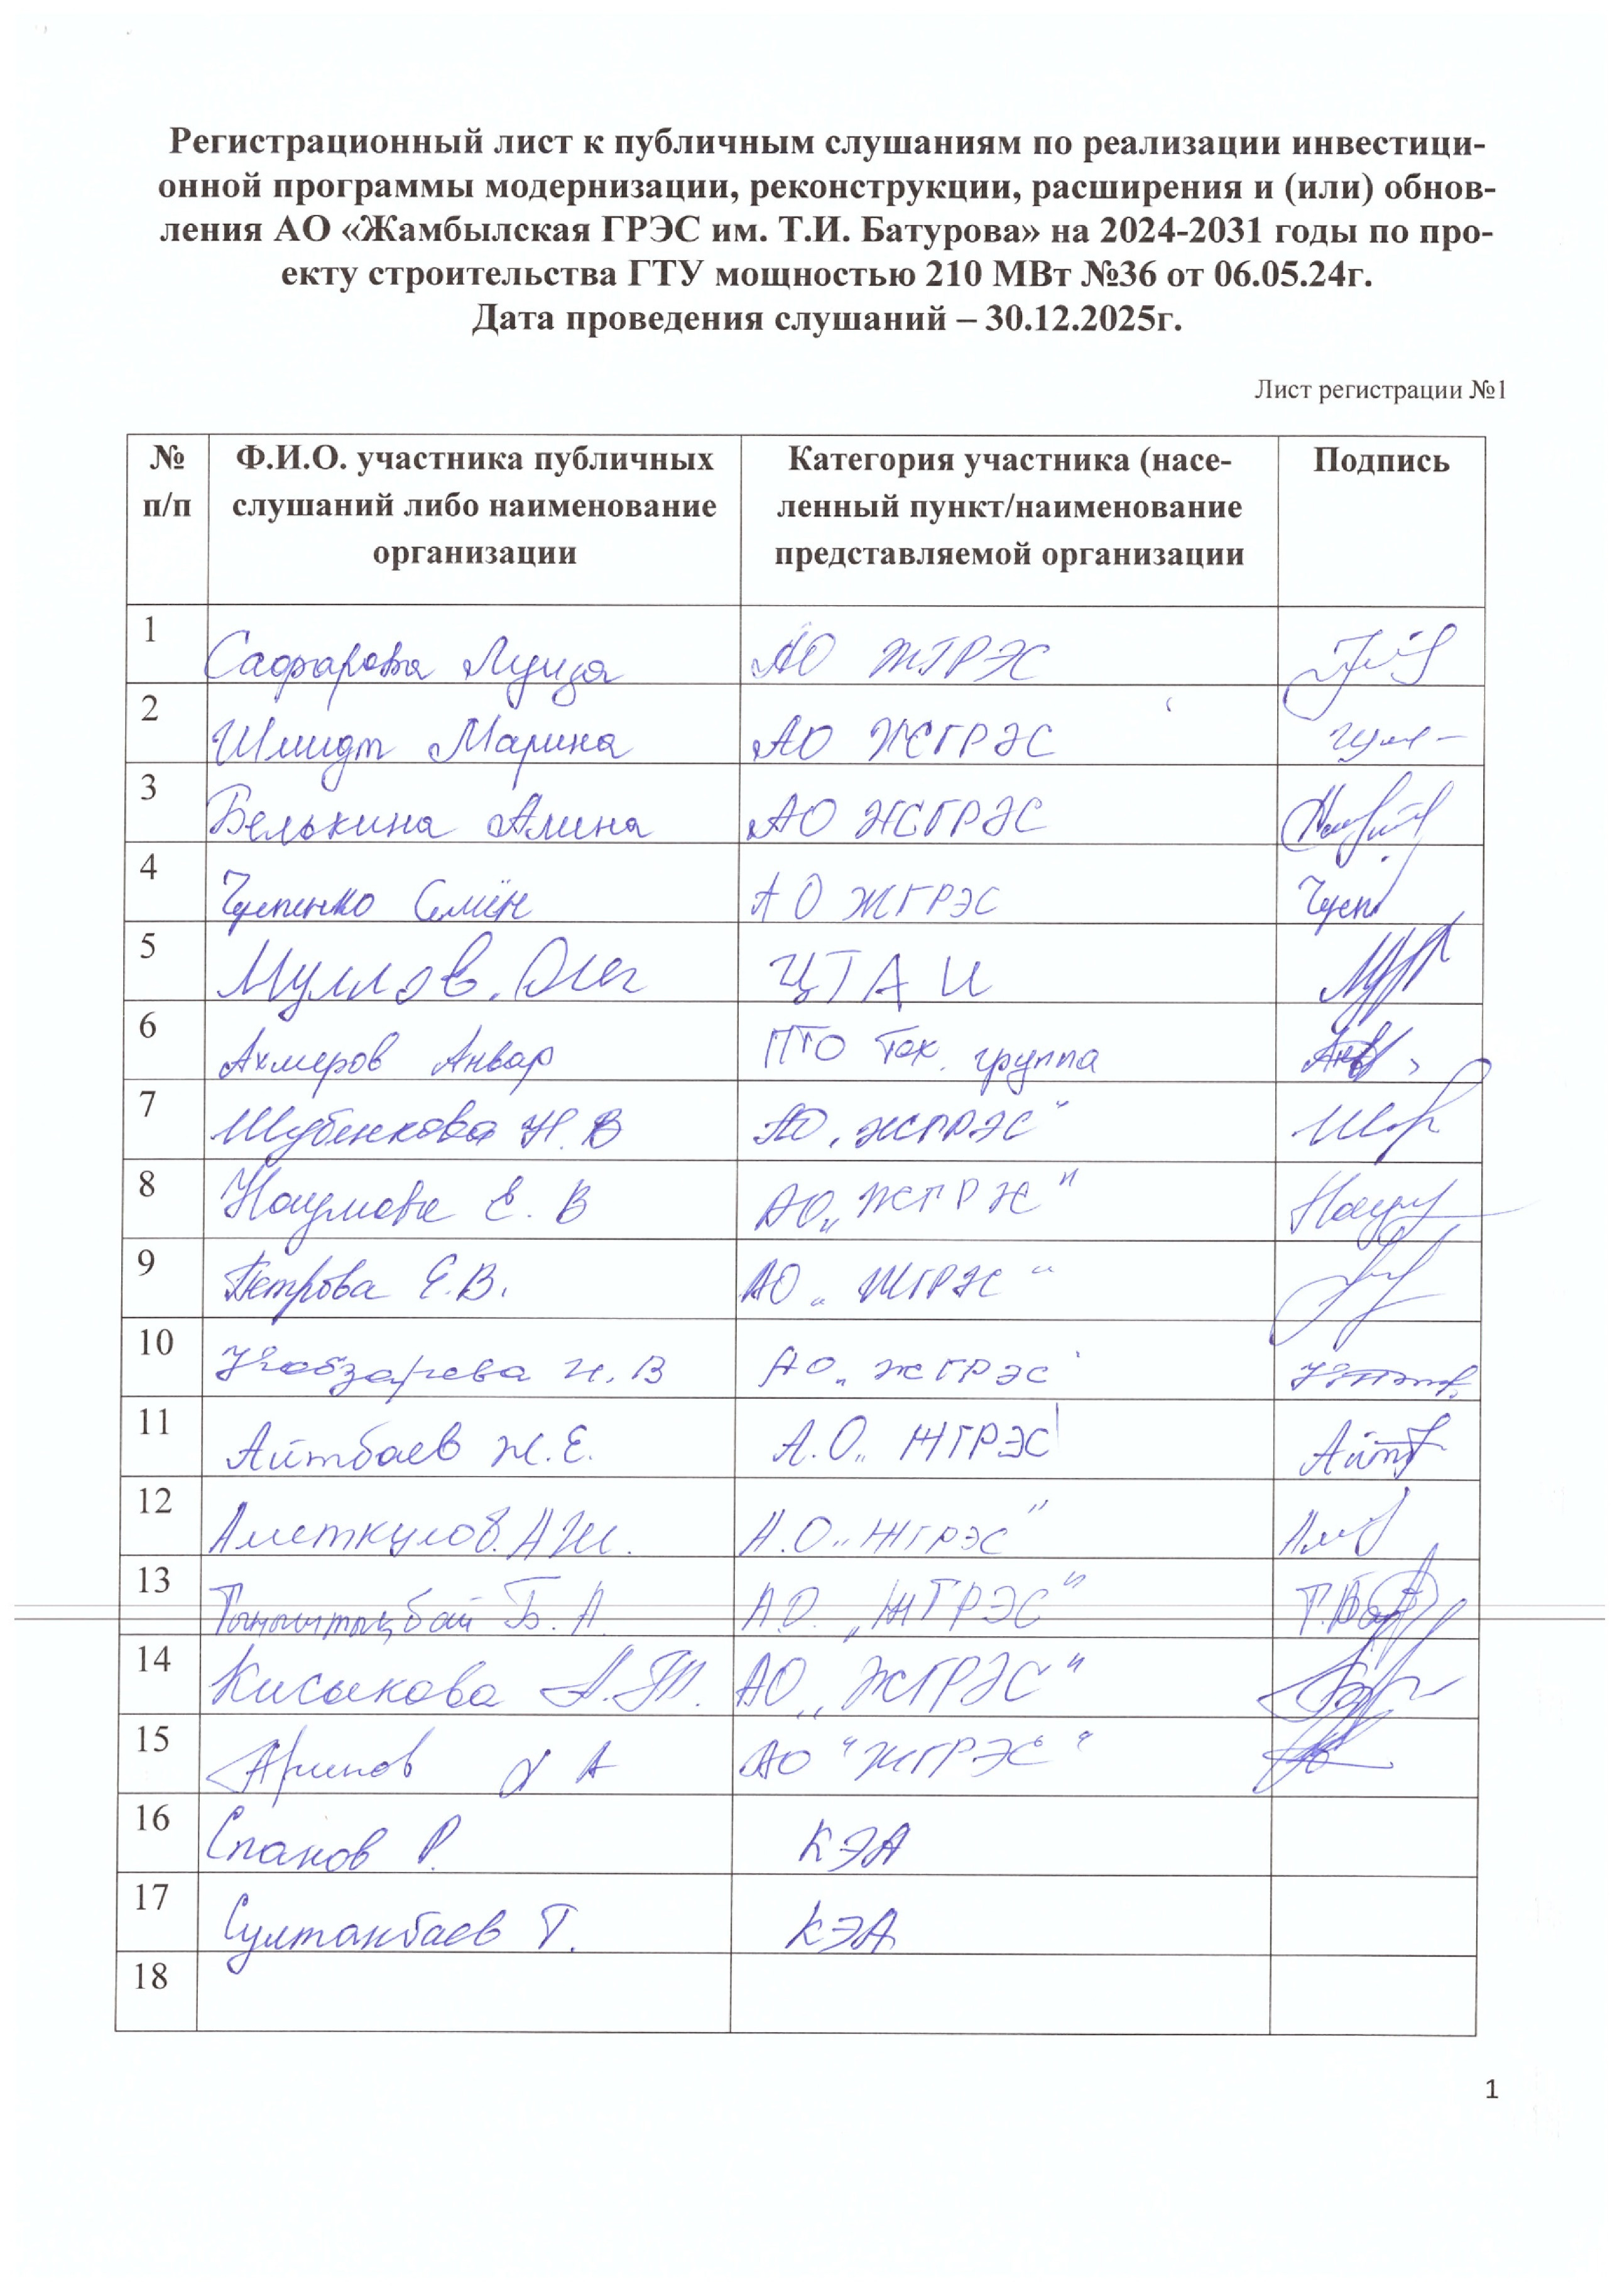 Регистрационный лист к публичным слушаниям по реализации инвестици-
онной программы модернизации, реконструкции, расширения и (или) обнов-
ления АО «Жамбылская ГРЭС им. Т.И. Батурова» на 2024-2031 годы по про-
екту строительства ГТУ мощностью 210 МВт №36 от 06.05.24г.
Дата проведения слушаний – 30.12.2025г.
Лист регистрации №1
№ Ф.И.О. участника публичных Категория участника (насе- Подпись
п/п слушаний либо наименование ленный пункт/наименование
организации представляемой организации
1 Сафарова Луиза АО ЖГРЭС
2 Шмидт Марина АО ЖГРЭС
3 Белькина Алина АО ЖГРЭС
4 Семён АО ЖГРЭС
5 Муллов Олег ЦТАИ
6 Ахмеров Анвар ПТО Тех. группа
7 Шубенкова Н.В АО „ЖГРЭС"
8 Наумова Е.В АО „ЖГРЭС"
9 Петрова Е.В. АО „ЖГРЭС"
10 Кобзарева Н.В АО „ЖГРЭС"
11 Айтбаев Ж.Е. А.О „ЖГРЭС"
12 Аметкулов А.Ж. А.О „ЖГРЭС"
13 Тыныштықбай Б.А. А.О. „ЖГРЭС"
14 Кисыкова А.Т. АО „ЖГРЭС"
15 Арипов А АО "ЖГРЭС"
16 Спанов Р. КЭА
17 Султанбаев Т. КЭА
18
1